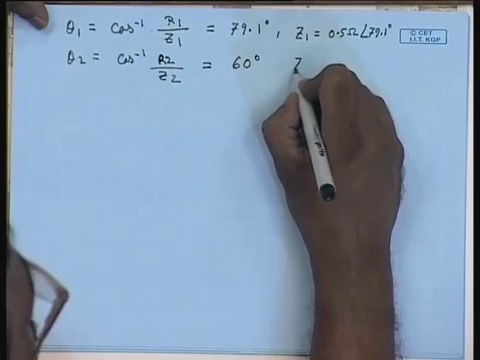 θ1 = cos⁻¹ R1/Z1 = 79.1°, Z1 = 0.5Ω∠79.1°
© CET
I.I.T. KGP
θ2 = cos⁻¹ R2/Z2 = 60° Z